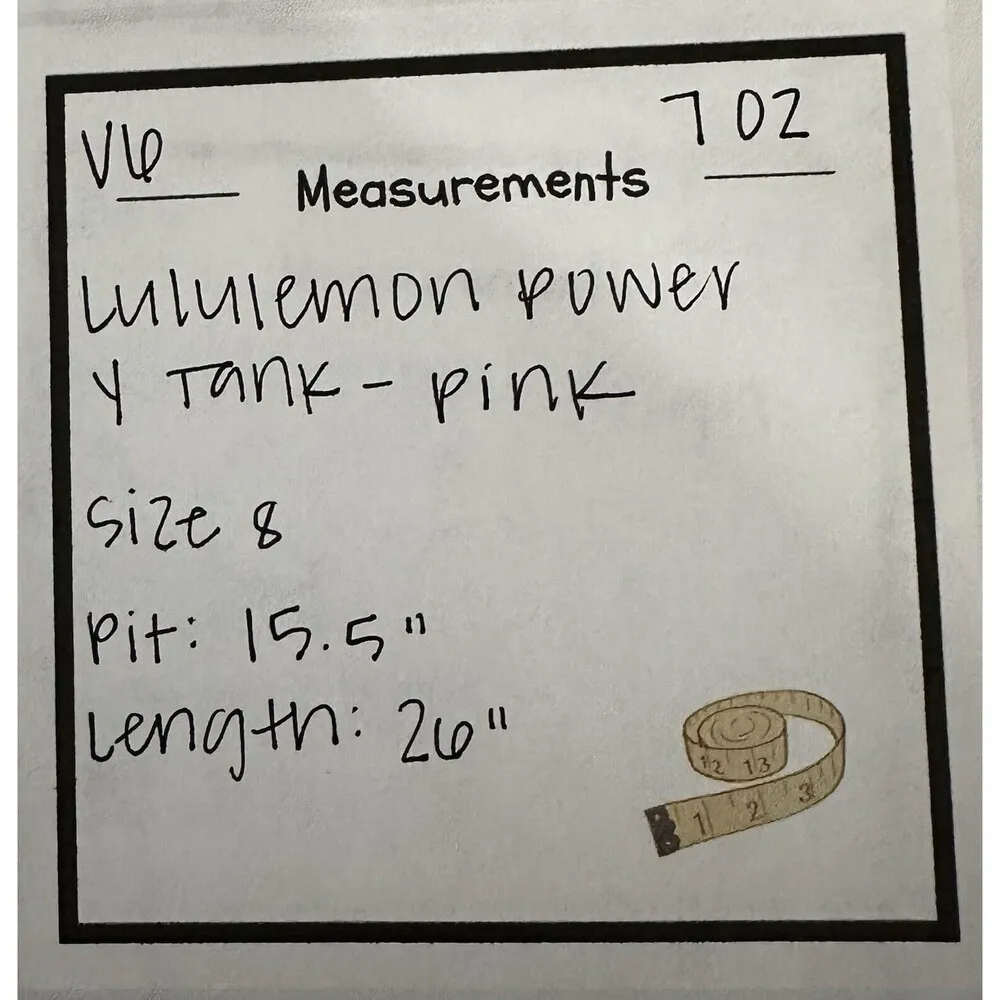 V6
7 02
Measurements
Lululemon power
Y Tank - pink
Size 8
Pit: 15.5"
Length: 26"
12 13
1 2 3